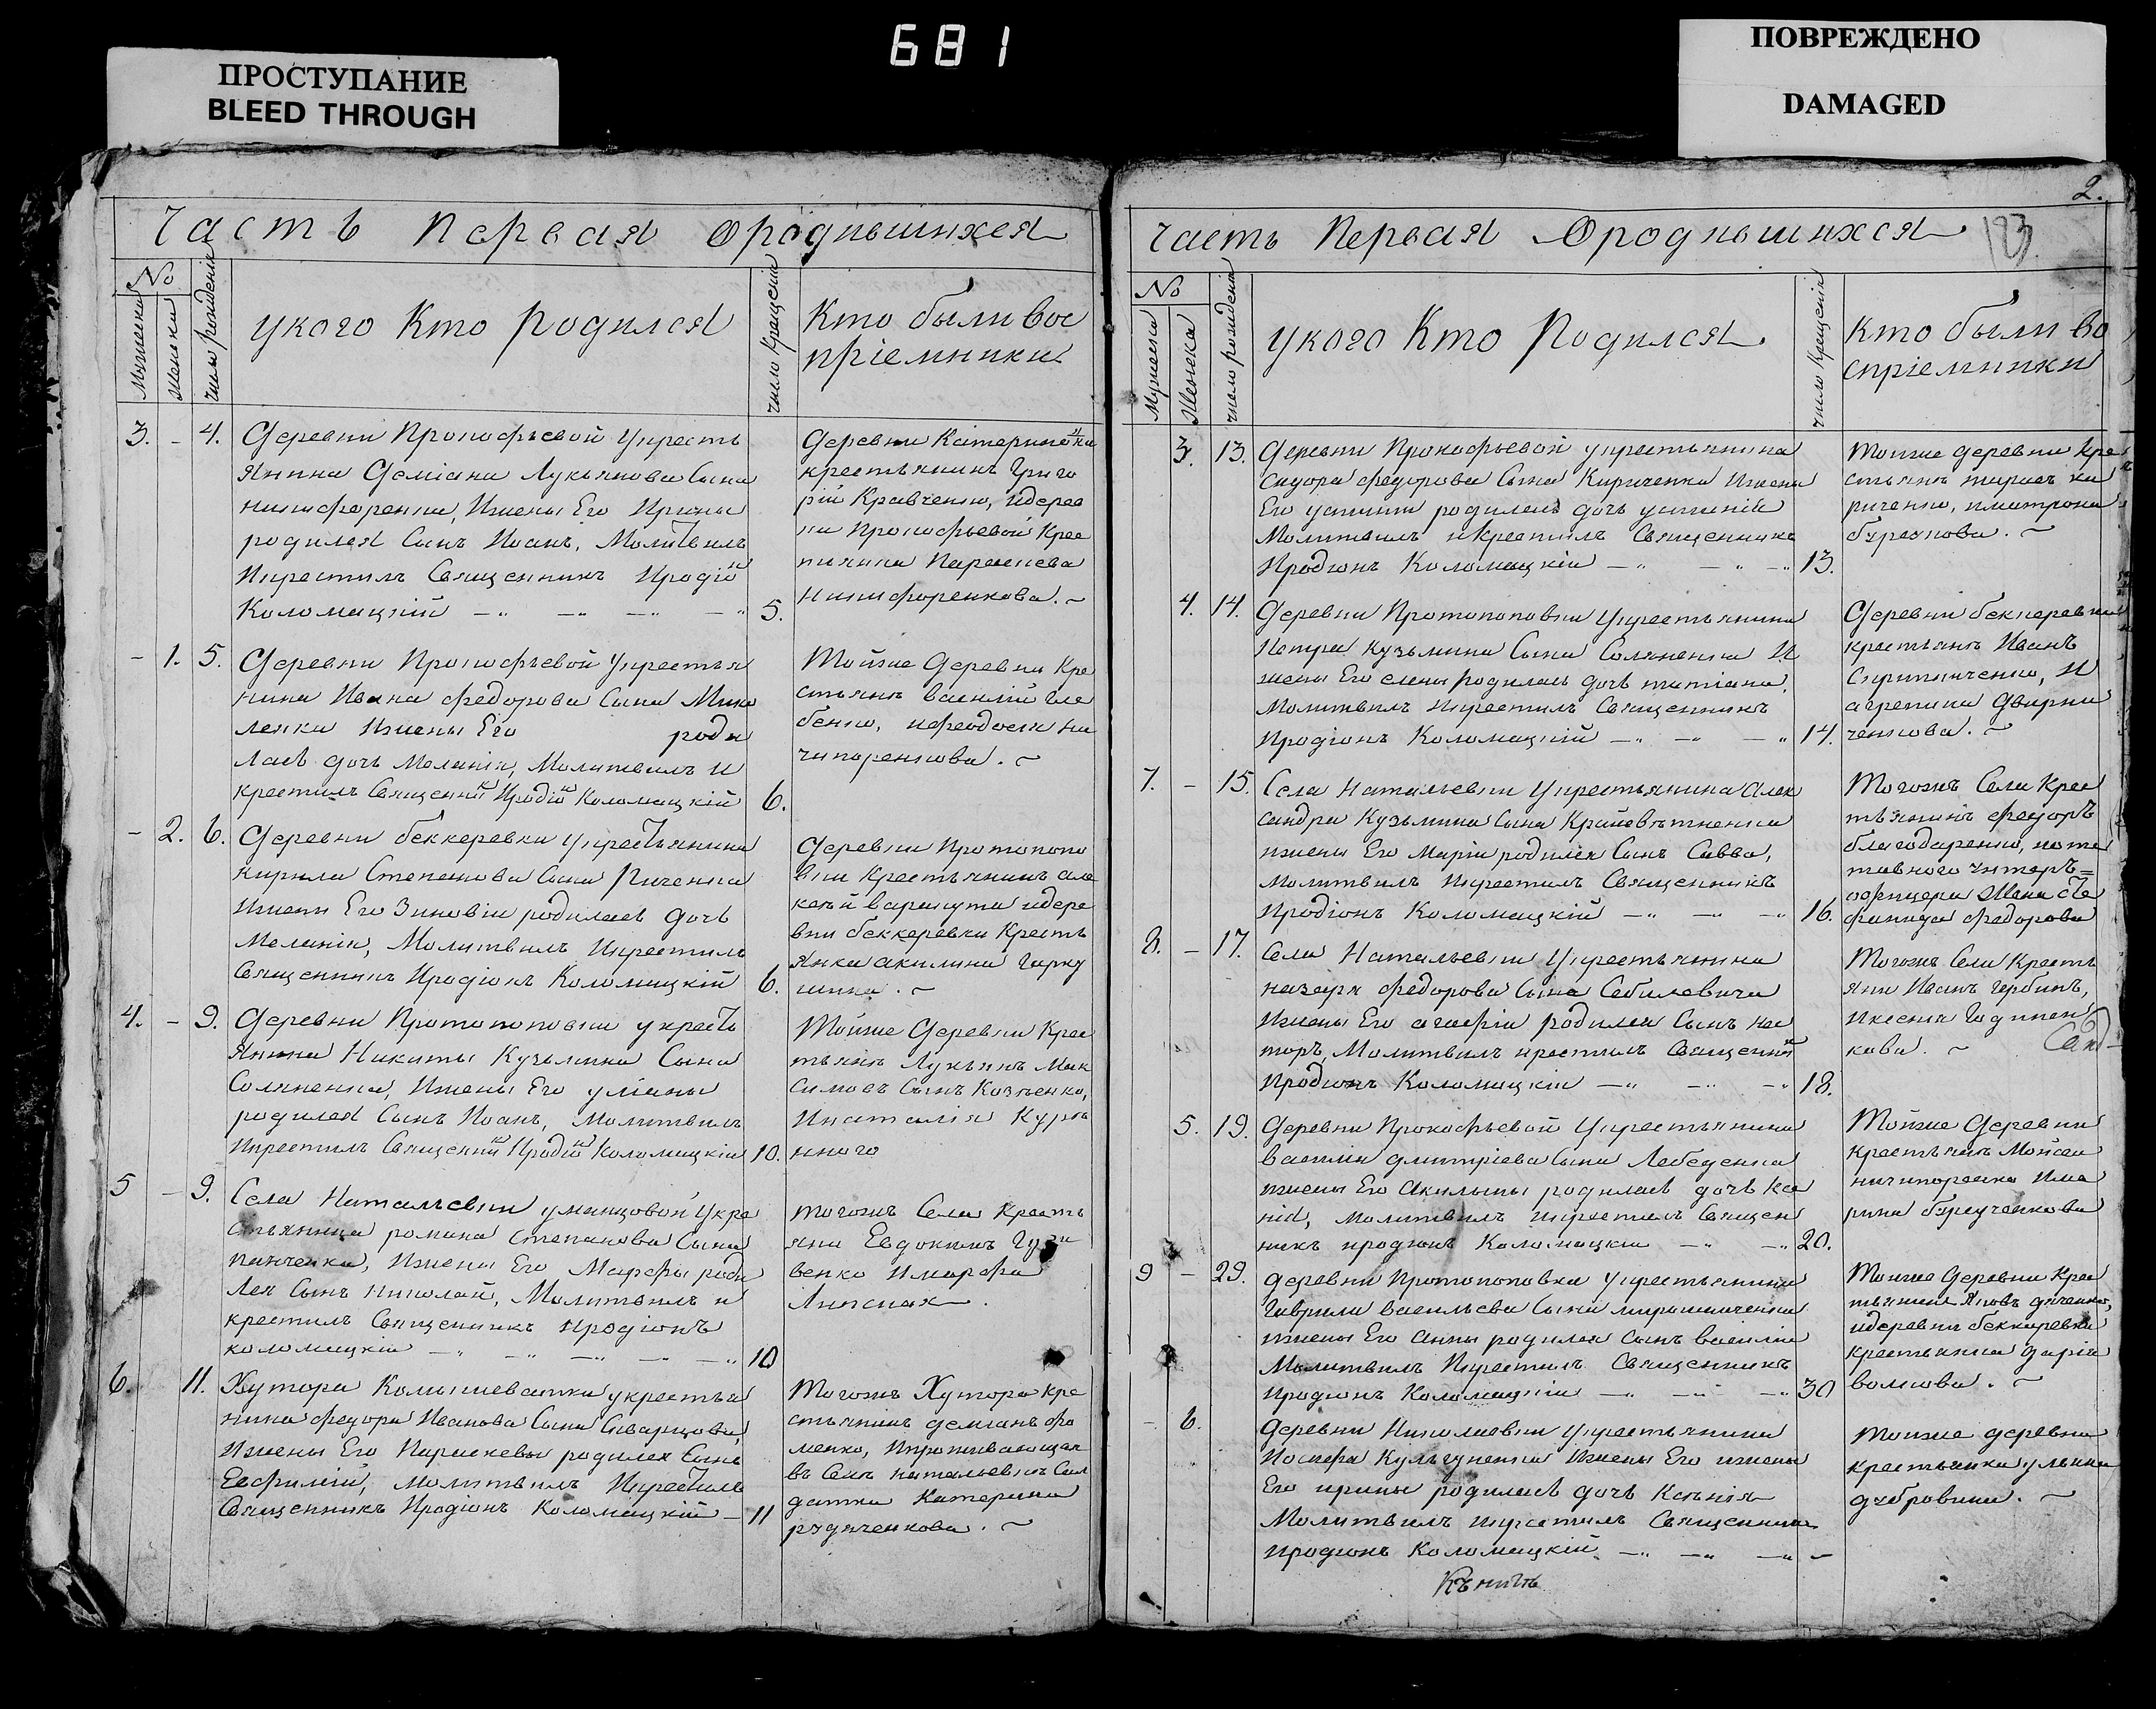 681
ПРОСТУПАНИЕ
BLEED THROUGH
ПОВРЕЖДЕНО
DAMAGED
Часть Первая Ородившихся
№
Мужеска
Женска
число рожденія
укого Кто Родился
число Крещенія
Кто были вос
пріемники
3. - 4. Деревни Прокофьевой укресть
янина Деміана Лукьянова Сына
никифоренка, Ижены Его Ирины
родился Сынъ Иоанъ, Молитвилъ
Икрестилъ Священникъ Иродіо
Коломацкій 5.
Деревни Катерино
крестьянинъ Григо
рій Кравченко, идерев
ни Прокофьевой Крес
тьянка Параскева
никифоренкова.
- 1. 5. Деревни Прокофьевой укрестья
нина Ивана федорова Сына Мико
ленка Ижены Его роди
лась дочь Меланія, Молитвилъ И
крестилъ Священни Иродіо Коломацкій 6.
Тойже Деревни Кре
стьянъ василій гле
бенко, ифеодосія ни
чипоренкова.
- 2. 6. Деревни беккеревки укрестьянина
кирила Степанова Сына Личенка
Ижены Его Зиновіи родилась дочь
Меланія, Молитвилъ Икрестилъ
Священникъ Иродіонъ Коломацкій 6.
Деревни Протопопо
вки Крестьянинъ але
ксѣй варакута идере
вни беккеревки Кресть
янка акилина гарку
шина.
4. - 9. Деревни Протопоповки укресть
янина Никиты Кузьмина Сына
Соляненка, Ижены Его уліаны
родился Сынъ Иоанъ, Молитвилъ
Икрестилъ Священни Иродіо Коломацкій 10.
Тойже Деревни Крес
тьянъ Лукьянъ Мак
симовъ Сынъ Козленко,
Инаталія Курп
нного
5 - 9. Села Натальевки уманцовой укре
стьянина романа Степанова Сына
панченка, Ижены Его Марфы роди
лся Сынъ николай, Молитвилъ и
крестилъ Священникъ Иродіонъ
коломацкій 10
тогожъ Села Кресть
яни Евдокимъ
венко Имарфа
6. 11. Хутора Колышеватки укрестья
нина федора Иванова Сына Скварцова,
Ижены Его Параскевы родился Сынъ
Евфимій, молитвилъ Икрестилъ
Священникъ Иродіонъ Коломацкій 11
Тогожъ Хутора кре
стьянинъ демианъ фо
менко, Ипроживающая
въ Селѣ натальевкѣ Сол
датка Катерина
рудиченкова.
2.
123
Часть Первая Ородившихся
№
Мужеска
Женска
число рожденія
укого Кто Родился
число Крещенія
кто были во
спріемники
3. 13. Деревни Прокофьевой укрестьянина
Сидора федорова Сына Кириченка Ижены
Его устини родилась дочь устинія
Молитвилъ икрестилъ Священникъ
Иродіонъ Коломацкій 13.
Тойже деревни Кре
стьянъ тарасъ ки
риченко, иматрона
бурякова.
4. 14. Деревни Протопоповки укрестьянина
Петра Кузьмина Сына Соляненка И
жены Его елены родилась дочь татіана,
Молитвилъ икрестилъ Священникъ
Иродіонъ Коломацкій 14.
Деревни беккеревки
крестьянъ Иванъ
Скрипниченко, И
агрепина дворни
ченкова.
7. - 15. Села Натальевки укрестьянина алек
сандра Кузьмина Сына Крайсвѣтненка
ижены Его Маріи родился Сынъ Савва,
Молитвилъ икрестилъ Священникъ
Иродіонъ Коломацкій 16.
Тогожъ Села Крес
тьянинъ федоръ
благодаренко, иотс
тавного унтеръ=
офицера Жена сте
фанида федорова
8. - 17. Села Натальевки укрестьянина
назара федорова Сына Себилевича
Ижены Его агафіи родился Сынъ нес
торъ, Молитвилъ крестилъ Священни
Иродіонъ Коломацкій 18.
Тогожъ Села Кресть
яни Иванъ гербинъ,
Иксенія Годинен
кова.
5. 19. Деревни Прокофьевой укрестьянина
василія дмитріева Сына Лебеденка
ижены Его Акилины родилась дочь Ксе
нія, Молитвилъ икрестилъ Священ
никъ иродіонъ Коломацкій 20.
Тойже Деревни
крестьянъ Мойсей
ничипоренко Има
рина бурдученкова
9 - 29. деревни Протопоповки укрестьянина
Гаврила васильева Сына мирошниченка
ижены Его анны родился сынъ василій
Молитвилъ Икрестилъ Священникъ
Иродіонъ Коломацкій 30
Тойже Деревни Крес
тьянинъ Яковъ дяченко,
идеревни беккеревки
крестьянка дарія
волкова.
- 6. Деревни Николаевки укрестьянина
Иосифа Кульгуненка Ижены Его ижены
Его ирины родилась дочь Ксенія
Молитвилъ икрестилъ Священникъ
Иродіонъ Коломацкій
Тойже деревни
крестьянка ульяна
дубровина.